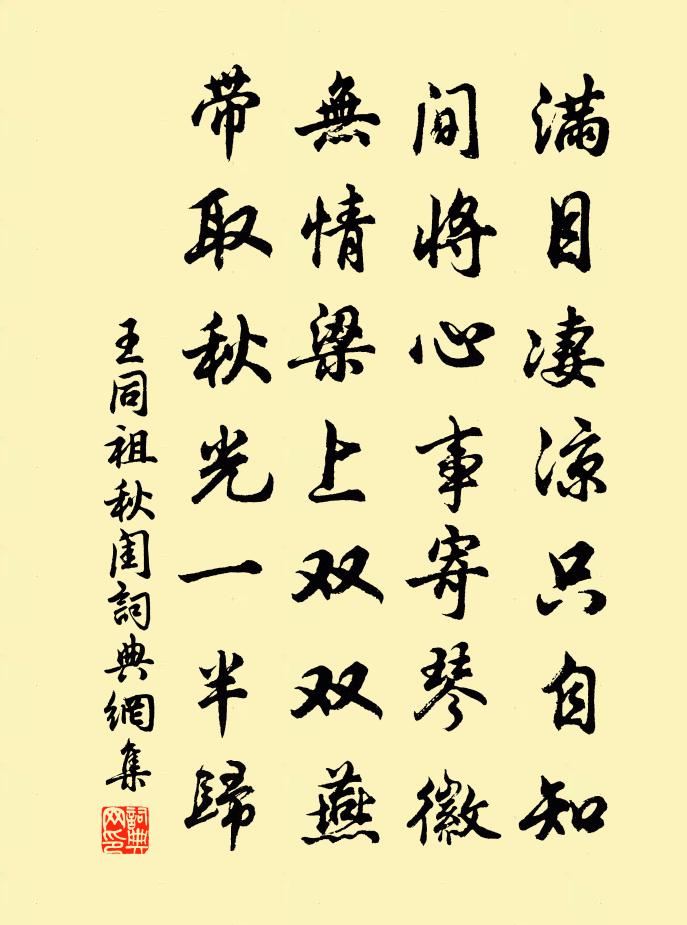 满目凄凉只自知
间将心事寄琴徽
無情梁上双双燕
带取秋光一半歸
王同祖秋闺詞典網集
詞典网印